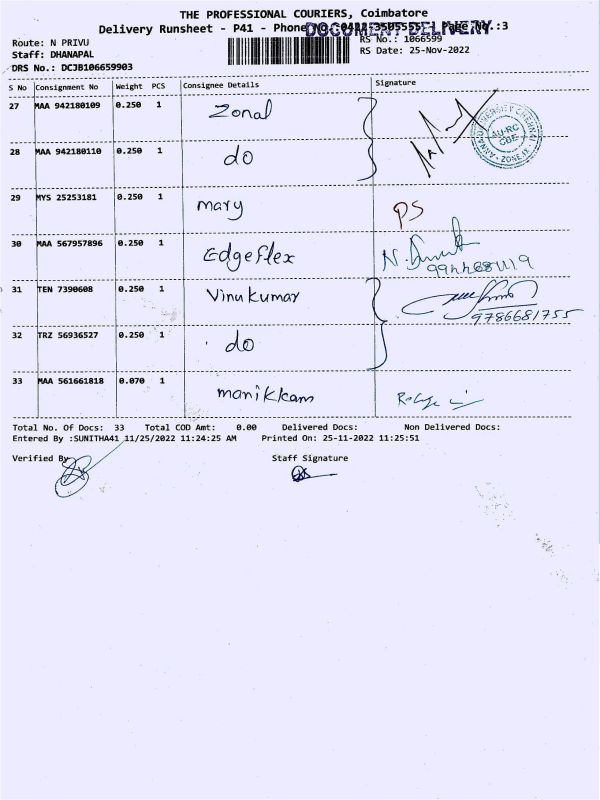 THE PROFESSIONAL COURIERS, Coimbatore
Delivery Runsheet - P41 - Phone No.:0422-3505555 | Page No.:3
DOCUMENT DELIVERY
Route: N PRIVU
RS No.: 1066599
Staff: DHANAPAL
RS Date: 25-Nov-2022
DRS No.: DCJB106659903
S No Consignment No Weight PCS Consignee Details Signature
27 MAA 942180109 0.250 1 Zonal
28 MAA 942180110 0.250 1 do
ANNA UNIVERSITY CHENNAI
AU-RC
CBE
ZONE IX
29 MYS 25253181 0.250 1 mary PS
30 MAA 567957896 0.250 1 Edgeflex
31 TEN 7390608 0.250 1 Vinukumar
9786681755
32 TRZ 56936527 0.250 1 do
33 MAA 561661818 0.070 1 manikkam
Total No. Of Docs: 33 Total COD Amt: 0.00 Delivered Docs: Non Delivered Docs:
Entered By :SUNITHA41 11/25/2022 11:24:25 AM Printed On: 25-11-2022 11:25:51
Verified By
Staff Signature